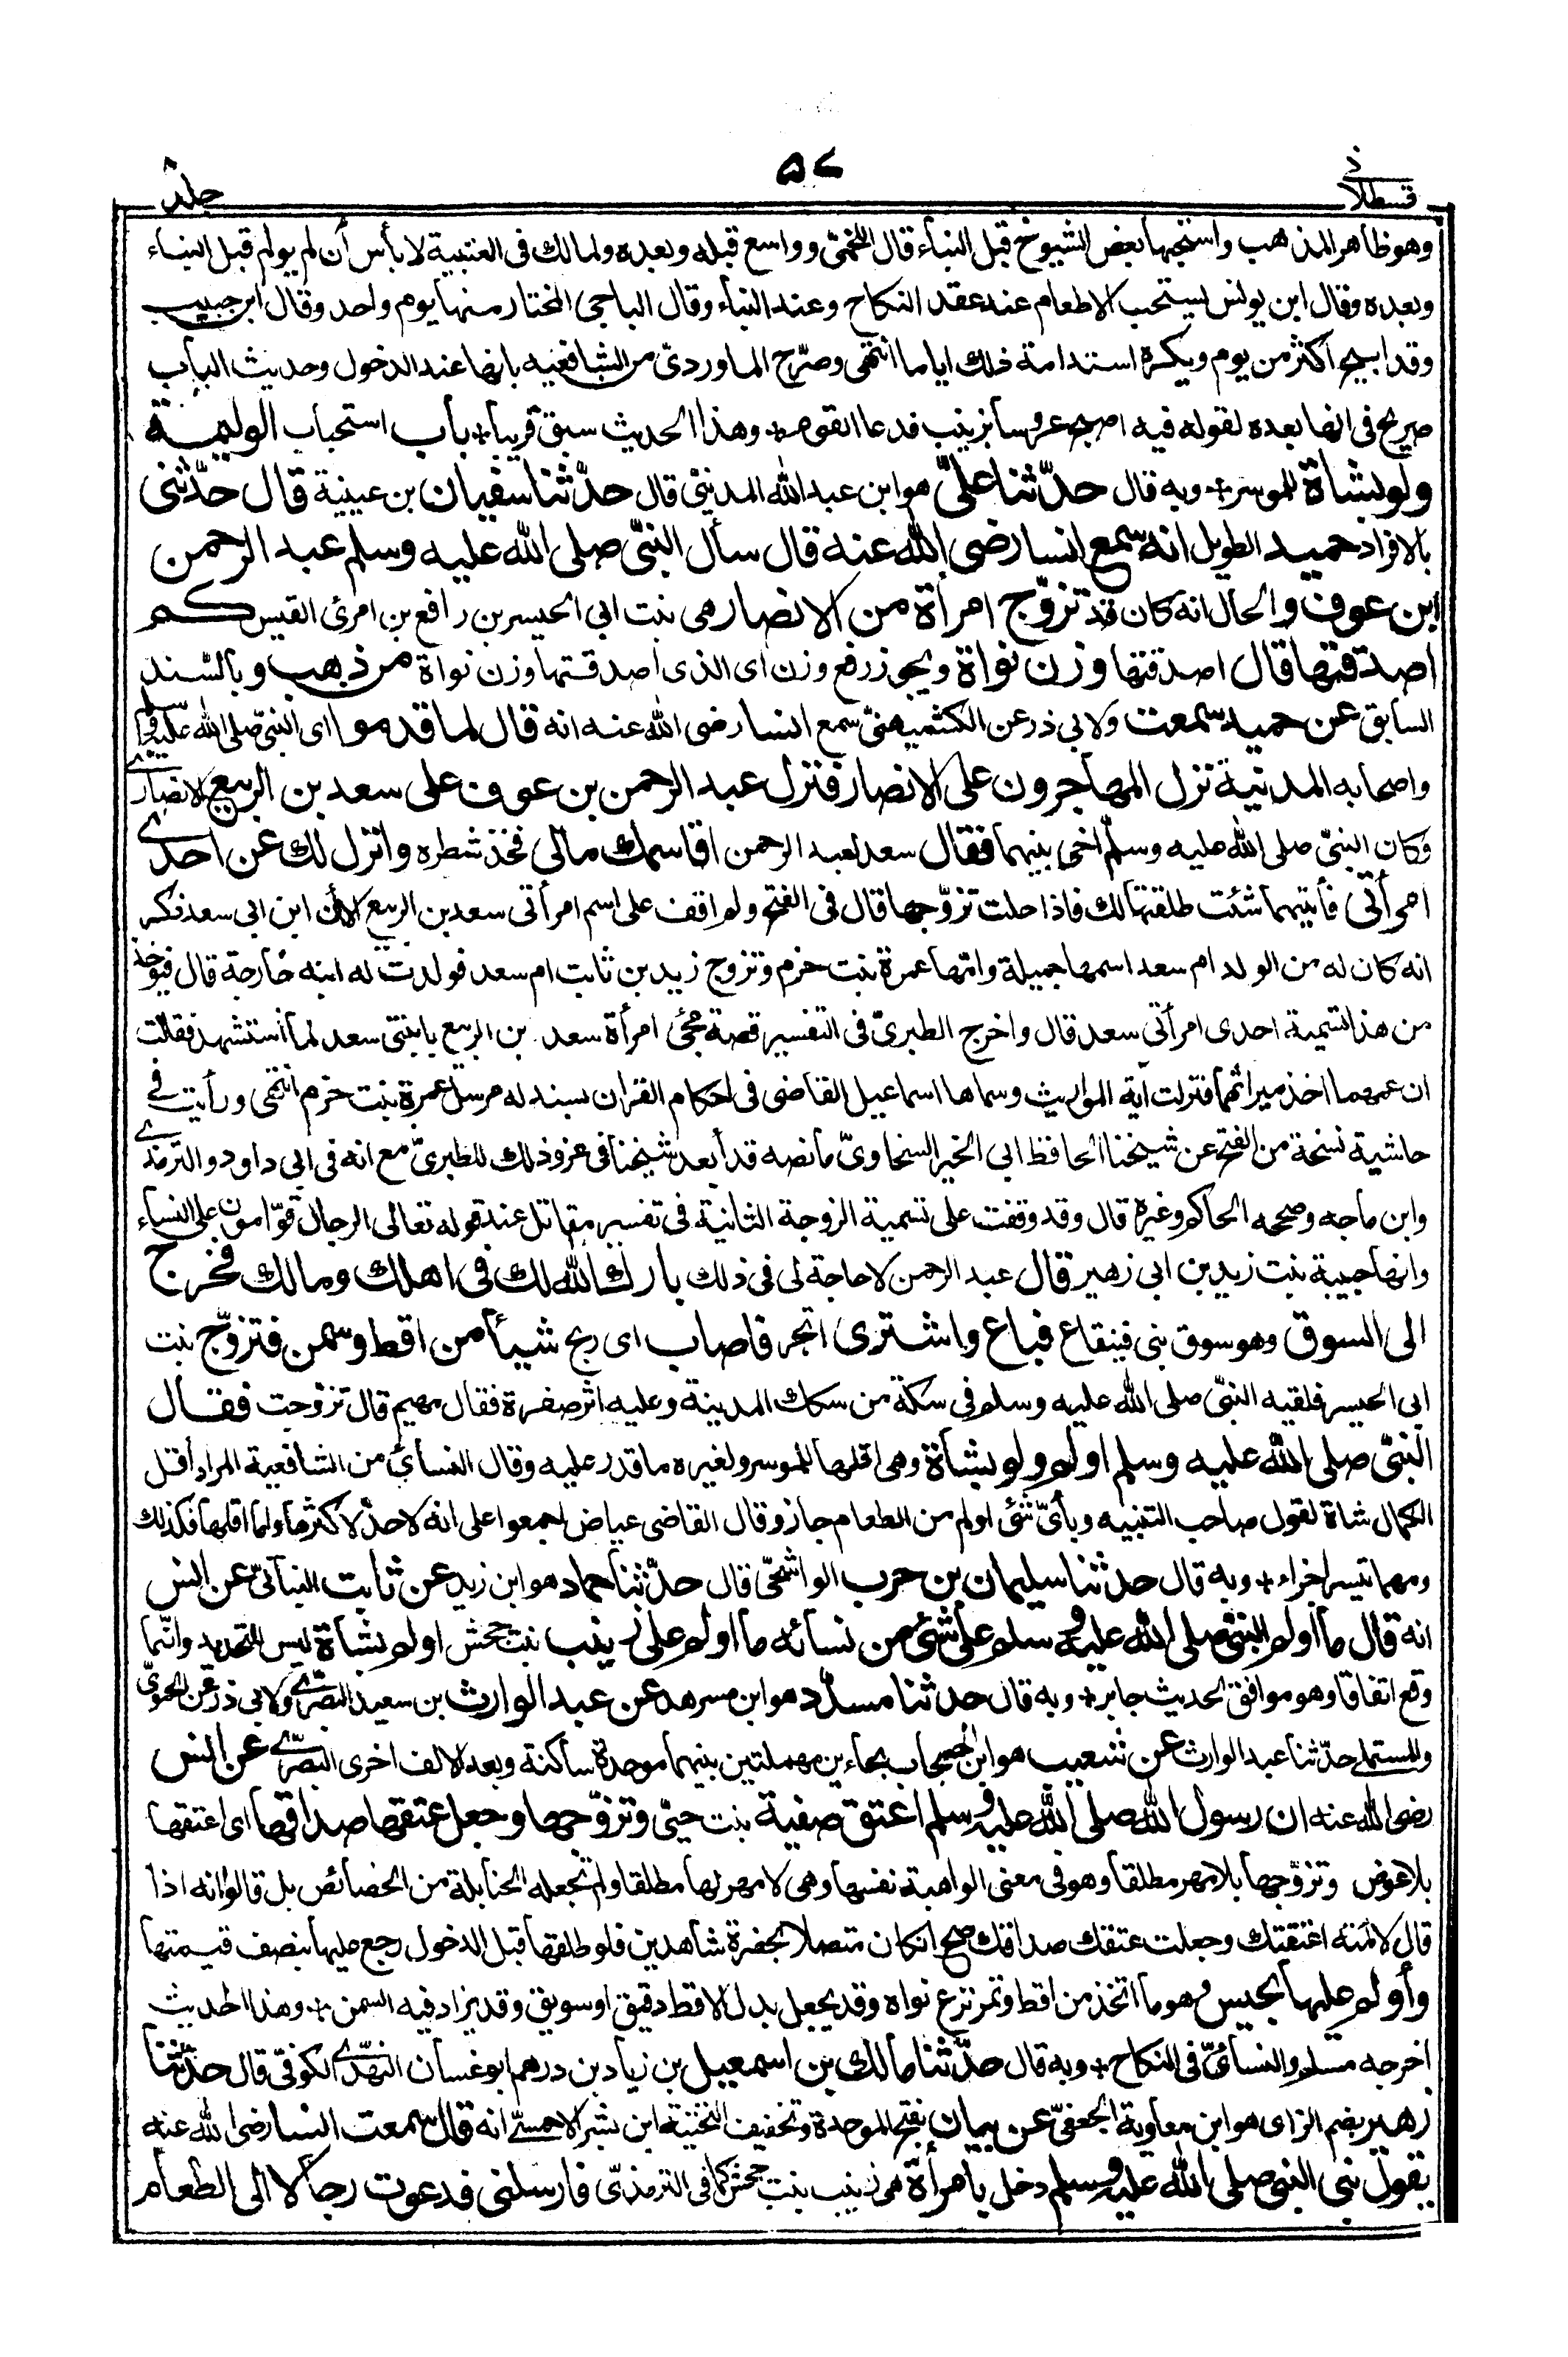 قسطلانى
٥٧
جلد ٨
وهو ظاهر المذهب واستحبها بعض الشيوخ قبل البناء قال اللخمىّ وواسع قبله وبعده ولمالك فى العتبية لا بأس أن لم يولم قبل البناء
وبعده وقال ابن يونس يستحب الاطعام عند عقد النكاح وعند البناء وقال الباجى المختار منها يوم واحد وقال ابن حبيب
وقد ابيح اكثر من يوم ويكره استدامة ذلك اياما انتهى وصرّح الماوردىّ من الشافعيه بانها عند الدخول وحديث الباب
صريح فى انها بعده لقوله فيه اصبح عروسا بزينب فدعا القوم + وهذا الحديث سبق قريبا + باب استحباب الوليمة
ولو بشاة للموسر + وبه قال حدّثنا علىّ هو ابن عبد الله المدينىّ قال حدّثنا سفيان بن عيينة قال حدّثنى
بالافراد حميد الطويل انه سمع انسا رضى الله عنه قال سأل النبىّ صلى الله عليه وسلم عبد الرحمن
ابن عوف والحال انه كان قد تزوّج امرأة من الانصار هى بنت ابى الحيسر بن رافع بن امرئ القيس كم
اصدقتها قال اصدقتها وزن نواة ويجوز رفع وزن اى الذى اصدقتها وزن نواة من ذهب وبالسّند
السابق عن حميد سمعت ولابى ذر عن الكشميهنىّ سمع انسا رضى الله عنه انه قال لما قدموا اى النبىّ صلى الله عليه وسلم
واصحابه المدينة نزل المهاجرون على الانصار فنزل عبد الرحمن بن عوف على سعد بن الربيع الانصارى
وكان النبىّ صلى الله عليه وسلم اخى بينهما فقال سعد لعبد الرحمن اقاسمك مالى فخذ شطره وانزل لك عن احدى
امرأتى فأيتهما شئت طلقتها لك فاذا حلت تزوّجها قال فى الفتح ولم اقف على اسم امرأتى سعد بن الربيع الا أن ابن ابى سعد ذكر
انه كان له من الولد ام سعد اسمها جميلة وامّها عمرة بنت حزم وتزوج زيد بن ثابت ام سعد فولدت له ابنه خارجة قال فيؤخذ
من هذا تسمية احدى امرأتى سعد قال واخرج الطبرىّ فى التفسير قصة مجئ امرأة سعد بن الربيع بابنتى سعد لما استشهد فقالت
ان عمهما اخذ ميراثهما فنزلت آية المواريث وسماها اسماعيل القاضى فى احكام القران بسند له مرسل عمرة بنت حزم انتهى ورأيت فى
حاشية نسخة من الفتح عن شيخنا الحافظ ابى الخير السخاوىّ ما نصه قد أبعد شيخنا فى عزو ذلك للطبرىّ مع انه فى ابى داود والترمذى
وابن ماجه وصححه الحاكم وغيره قال وقد وقفت على تسمية الزوجة الثانية فى تفسير مقاتل عند قوله تعالى الرجال قوّامون على النساء
وانها حبيبة بنت زيد بن ابى زهير قال عبد الرحمن لا حاجة لى فى ذلك بارك الله لك فى اهلك ومالك فخرج
الى السوق وهو سوق بنى قينقاع فباع واشترى اتجر فاصاب اى ربح شيأ من اقط وسمن فتزوّج بنت
ابى الحيسر فلقيه النبىّ صلى الله عليه وسلم فى سكة من سكك المدينة وعليه اثر صفرة فقال مهيم قال تزوّجت فقال
النبىّ صلى الله عليه وسلم اولم ولو بشاة وهى اقلها للموسر ولغيره ما قدر عليه وقال النسائ من الشافعية المراد أقل
الكمال شاة لقول صاحب التنبيه وبأىّ شئ اولم من الطعام جاز وقال القاضى عياض اجمعوا على انه لا حدّ لاكثرها واما اقلها فكذلك
ومهما تيسر اجزاء + وبه قال حدثنا سليمان بن حرب الواشحىّ قال حدّثنا حماد هو ابن زيد عن ثابت البنانىّ عن انس
انه قال ما اولم النبىّ صلى الله عليه وسلم على شئ من نسائه ما اولم على زينب بنت جحش اولم بشاة ليس للتحديد وانّما
وقع اتفاقا وهو موافق لحديث جابر + وبه قال حدثنا مسدّد هو ابن مسرهد عن عبد الوارث بن سعيد البصرى ولابى ذر عن الحموىّ
وللمستملى حدّثنا عبد الوارث عن شعيب هو ابن الحبحاب بحاءين مهملتين بينهما موحدة ساكنة وبعد الالف اخرى البصرّى عن انس
رضى الله عنه ان رسول الله صلى الله عليه وسلم اعتق صفية بنت حيىّ وتزوّجها وجعل عتقها صداقها اى اعتقها
بلا عوض وتزوّجها بلا مهر مطلقا وهو فى معنى الواهبة نفسها وهى لا مهر لها مطلقا ولم تجعله الحنابلة من الخصائص بل قالوا انه اذا
قال لامته اعتقتك وجعلت عتقك صداقك صح ان كان متصلا بحضرة شاهدين فلو طلقها قبل الدخول رجع عليها بنصف قيمتها
وأولم عليها بحيس هو ما اتخذ من اقط وتمر نزع نواه وقد يجعل بدل الاقط دقيق او سويق وقد يزاد فيه السمن + وهذا الحديث
اخرجه مسلم والنسائىّ فى النكاح + وبه قال حدّثنا مالك بن اسمعيل بن زياد بن درهم ابو غسان النهدّى الكوفىّ قال حدّثنا
زهير بضم الزاى هو ابن معاوية الجعفىّ عن بيان بفتح الموحدة وتخفيف التحتية ابن بشر الاحمسىّ انه قال سمعت انسا رضى الله عنه
يقول بنى النبى صلى الله عليه وسلم دخل بامرأة هى زينب بنت جحش كما فى الترمذىّ فارسلنى فدعوت رجالا الى الطعام